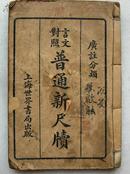 廣註分類
言文
對照
普通新尺牘
上海世界書局出版